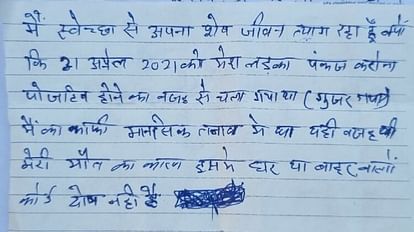 मैं स्वेच्छा से अपना शेष जीवन त्याग रहा हूँ क्यों
कि 21 अप्रैल 2021 को मेरा लड़का पंकज करोना
पोजटिव होने का वजह से चला गया था (गुजर गया)
मैं का काफी मानसिक तनाव मे था यही वजह थी
मेरी मौत का कारण इसमे घर या बाहर वालों
कोई दोष नही है